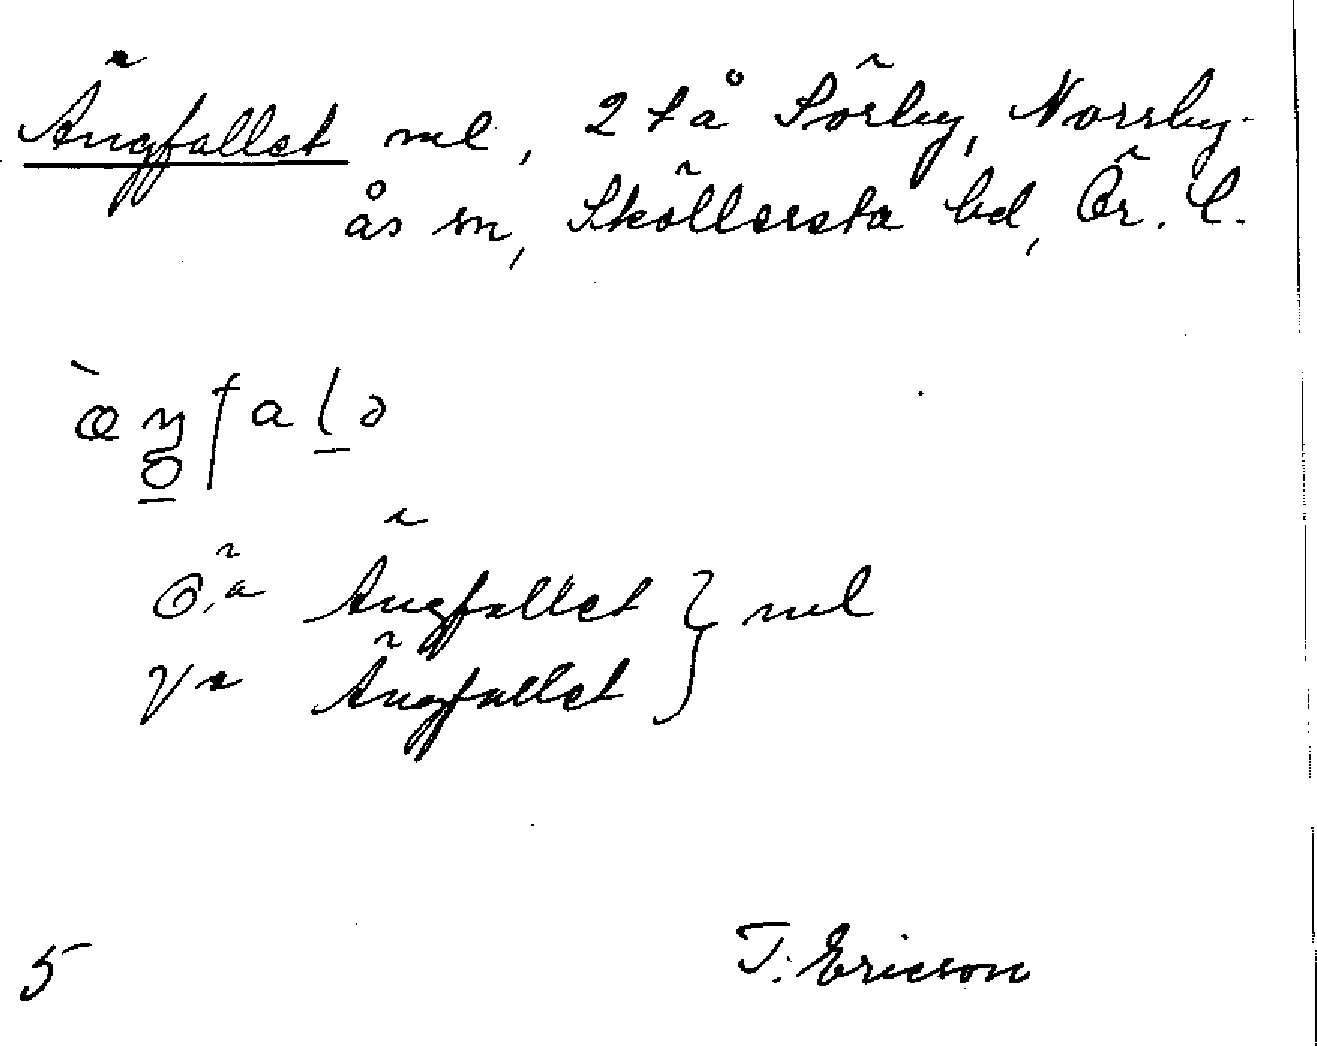 Ängfallet ml, 2 tå Sörby, Norrby-
ås sn, Sköllersta hd, Ör. l.
Ö.a Ängfallet } ml
V a Ängfallet
5 T. Ericson